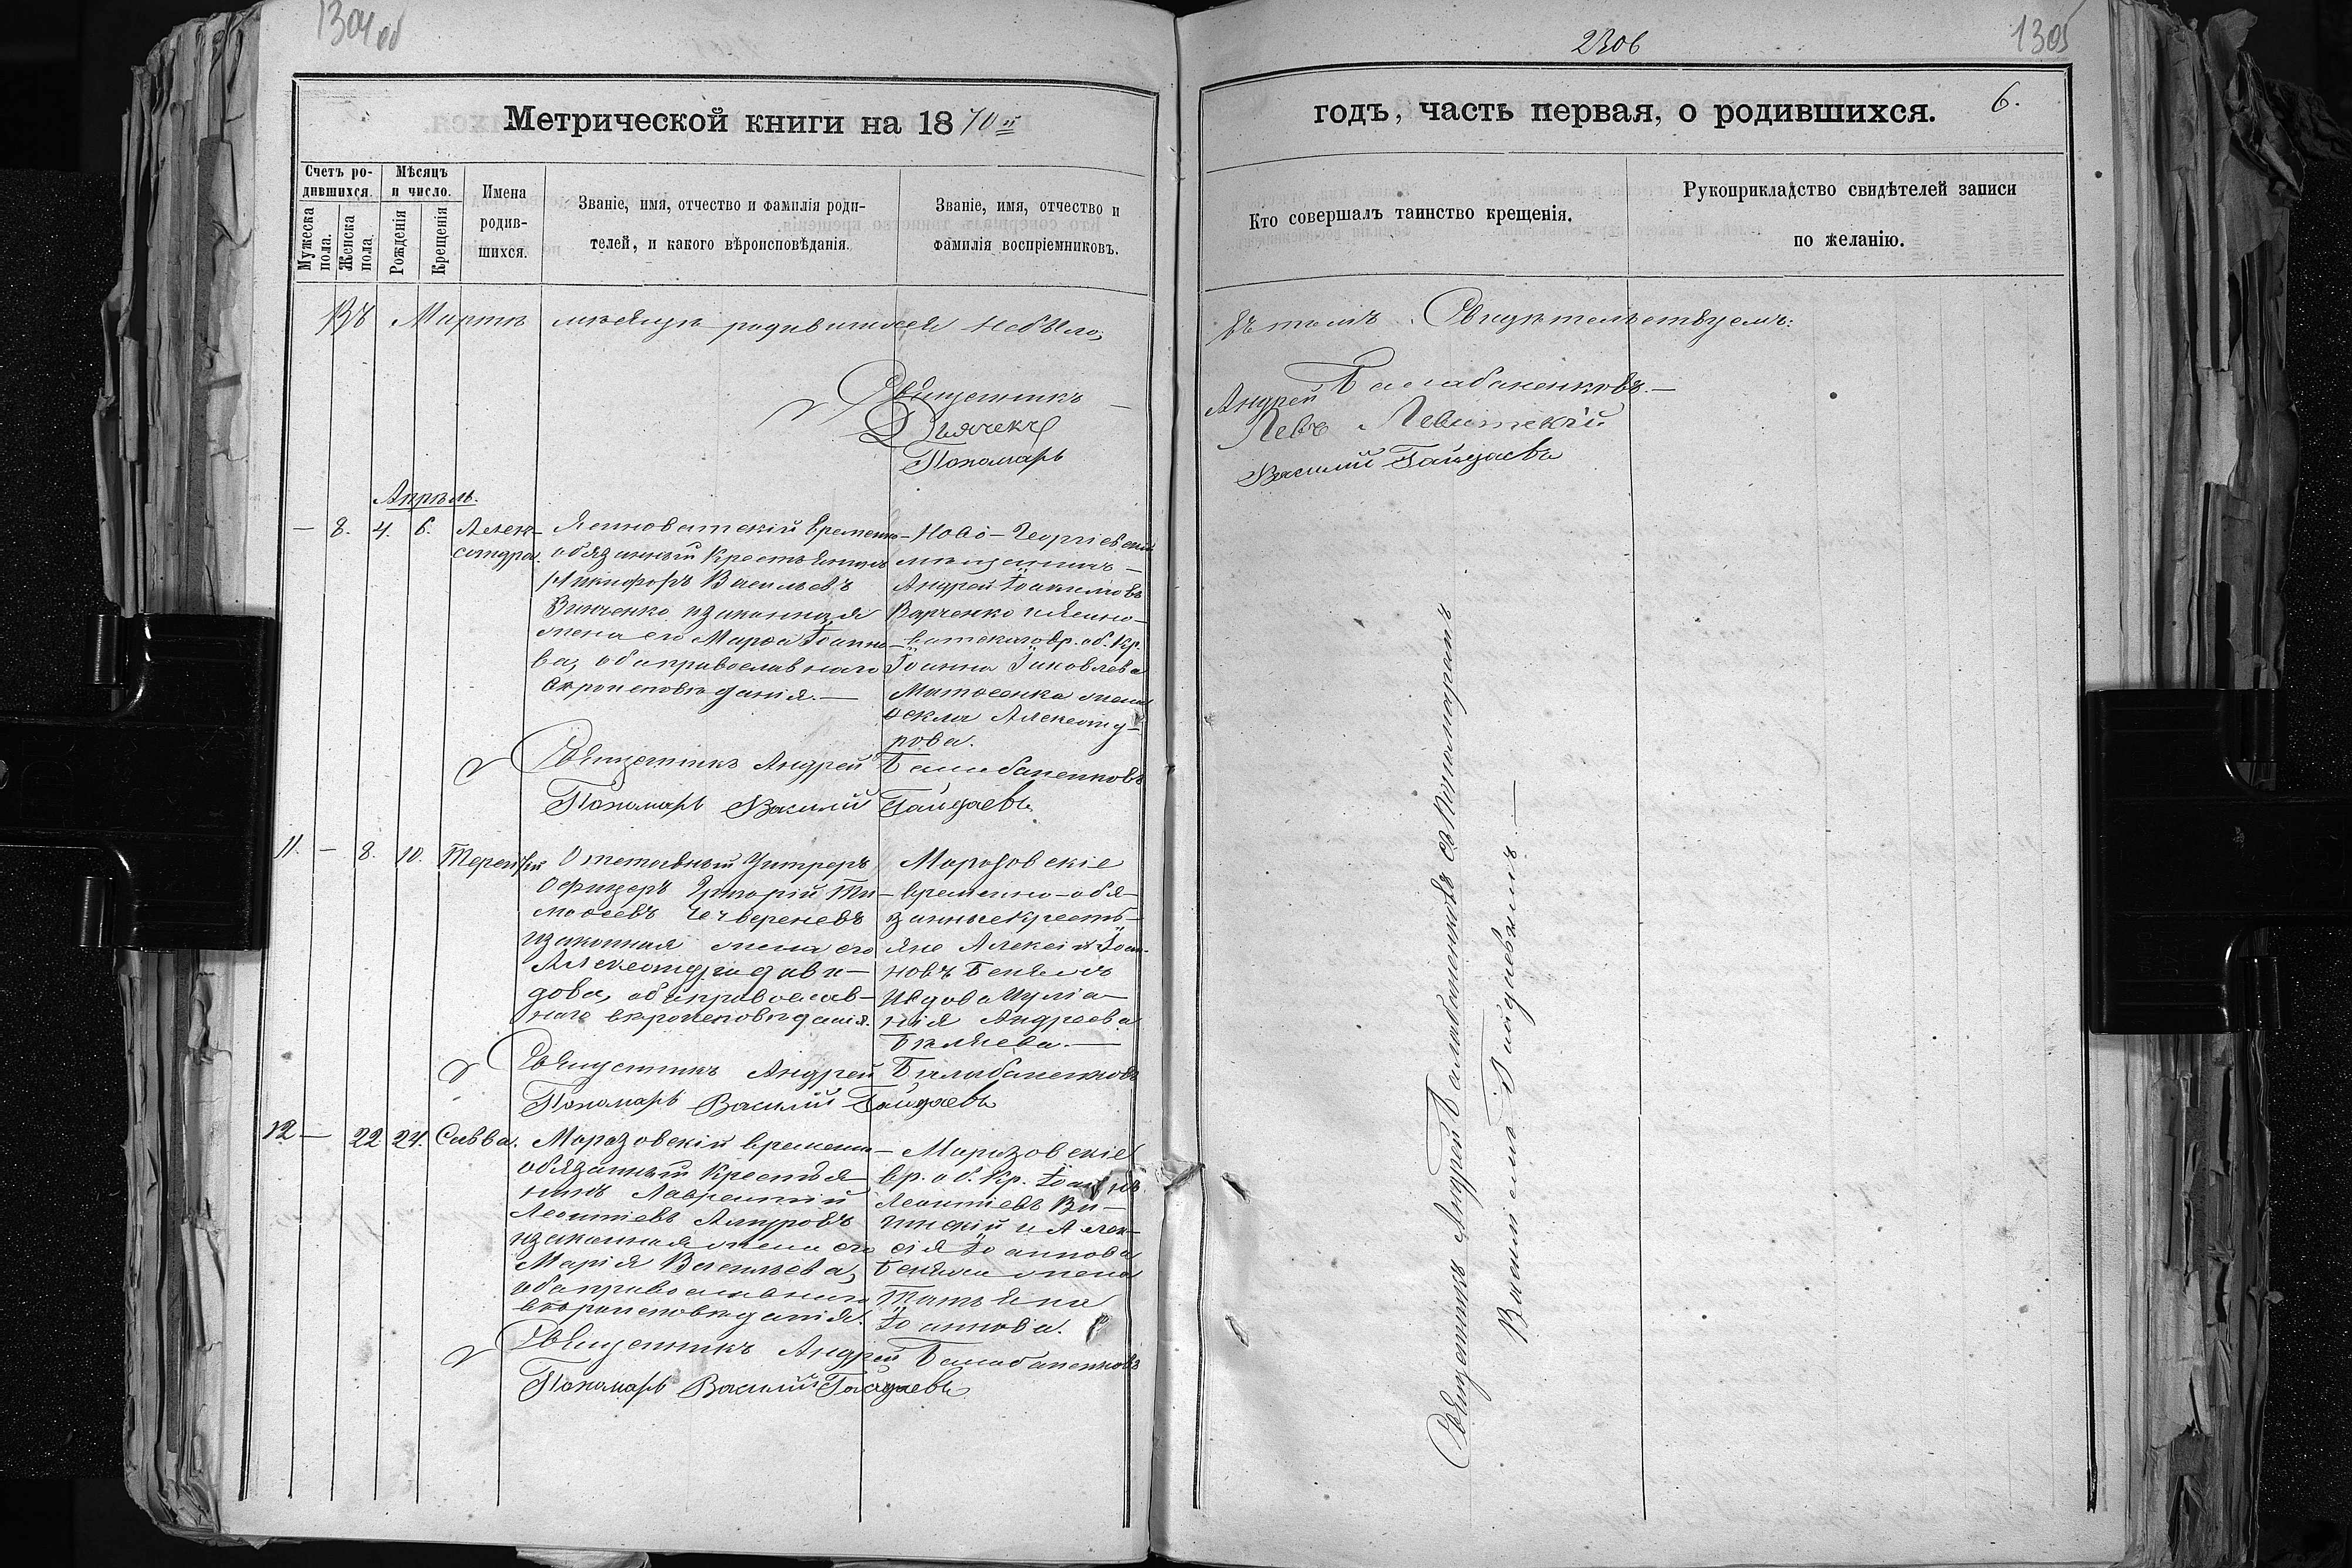 1304 об
Метрической книги на 1870й
Счетъ ро-
дившихся.
Мужеска пола.
Женска пола.
Мѣсяцъ
и число.
Рожденія
Крещенія
Имена
родив-
шихся.
Званіе, имя, отчество и фамилія роди-
телей, и какого вѣроисповѣданія.
Званіе, имя, отчество и
фамилія воспріемниковъ.
Въ Мартѣ мѣсяцѣ родившихся небыло,
Священникъ
Дьячекъ
Пономарь
Апрѣль.
— 8. 4. 6. Алек-
сандра.
временно-
обязанный крестьянинъ
Никифоръ Васильевъ
Зинченко изаконная
жена его Марѳа Іоанно-
ва, оба православнаго
вѣроисповѣданія. —
Ново-Георгіевскій
мѣщанинъ —
Андрей Іоакимовъ
вр. об. кр.
Іоанна Іаковлева
жена
Ѳекла Александ-
рова.
Священникъ Андрей Балабаненковъ
Пономарь Василій Гайдаевъ
11. — 8. 10. Терентій
Отставный Унтеръ
Офицеръ Григорій Ти-
моѳеевъ
изаконная жена его
Александра Дави-
дова, оба православ-
наго вѣроисповѣданія.
Марозовскіе
временно-обя-
занные кресть-
яне Алексій Іоан-
новъ
ивдова
Андреева
Священникъ Андрей Балабаненковъ
Пономарь Василій Гайдаевъ
12 — 22 24. Савва.
Марозовскій временно-
обязанный крестья-
нинъ Лаврентій
Леонтіевъ
изаконная жена его
Марія Васильева,
оба православнаго
вѣроисповѣданія.
Марозовскіе
вр. об. кр. Іоаннъ
Леонтіевъ
и Алек-
сія Іоаннова
жена
Татьяна
Іоаннова.
Священникъ Андрей Балабаненковъ
Пономарь Василій Гайдаевъ
2306
1305
годъ, часть первая, о родившихся.
6.
Кто совершалъ таинство крещенія.
Рукоприкладство свидѣтелей записи
по желанію.
въ томъ Свидѣтельствуемъ:
Андрей Балабаненковъ. —
Левъ Левитскій
Василій Гайдаевъ
Священникъ Андрей Балабаненковъ съ Пономаремъ
Василіемъ Гайдаевымъ. —